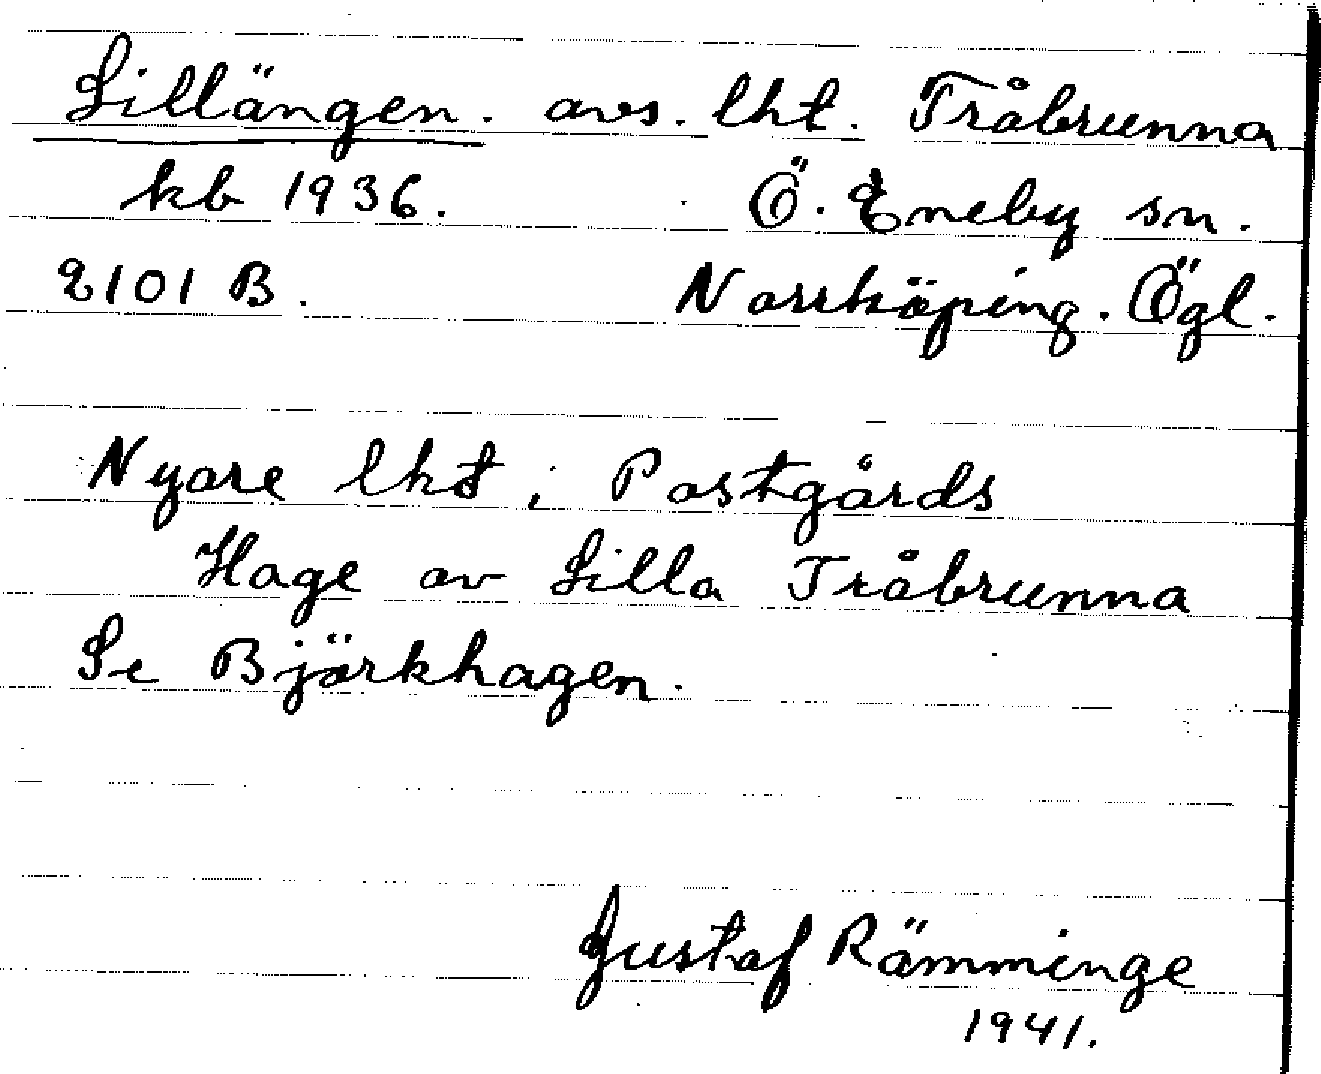 Lillängen. avs. lht. Tråbrunna
kb 1936. Ö. Eneby sn.
2101 B. Norrköping. Ögl.
Nyare lht i Postgårds
Hage av Lilla Tråbrunna
Se Björkhagen.
Gustaf Rämminge
1941.